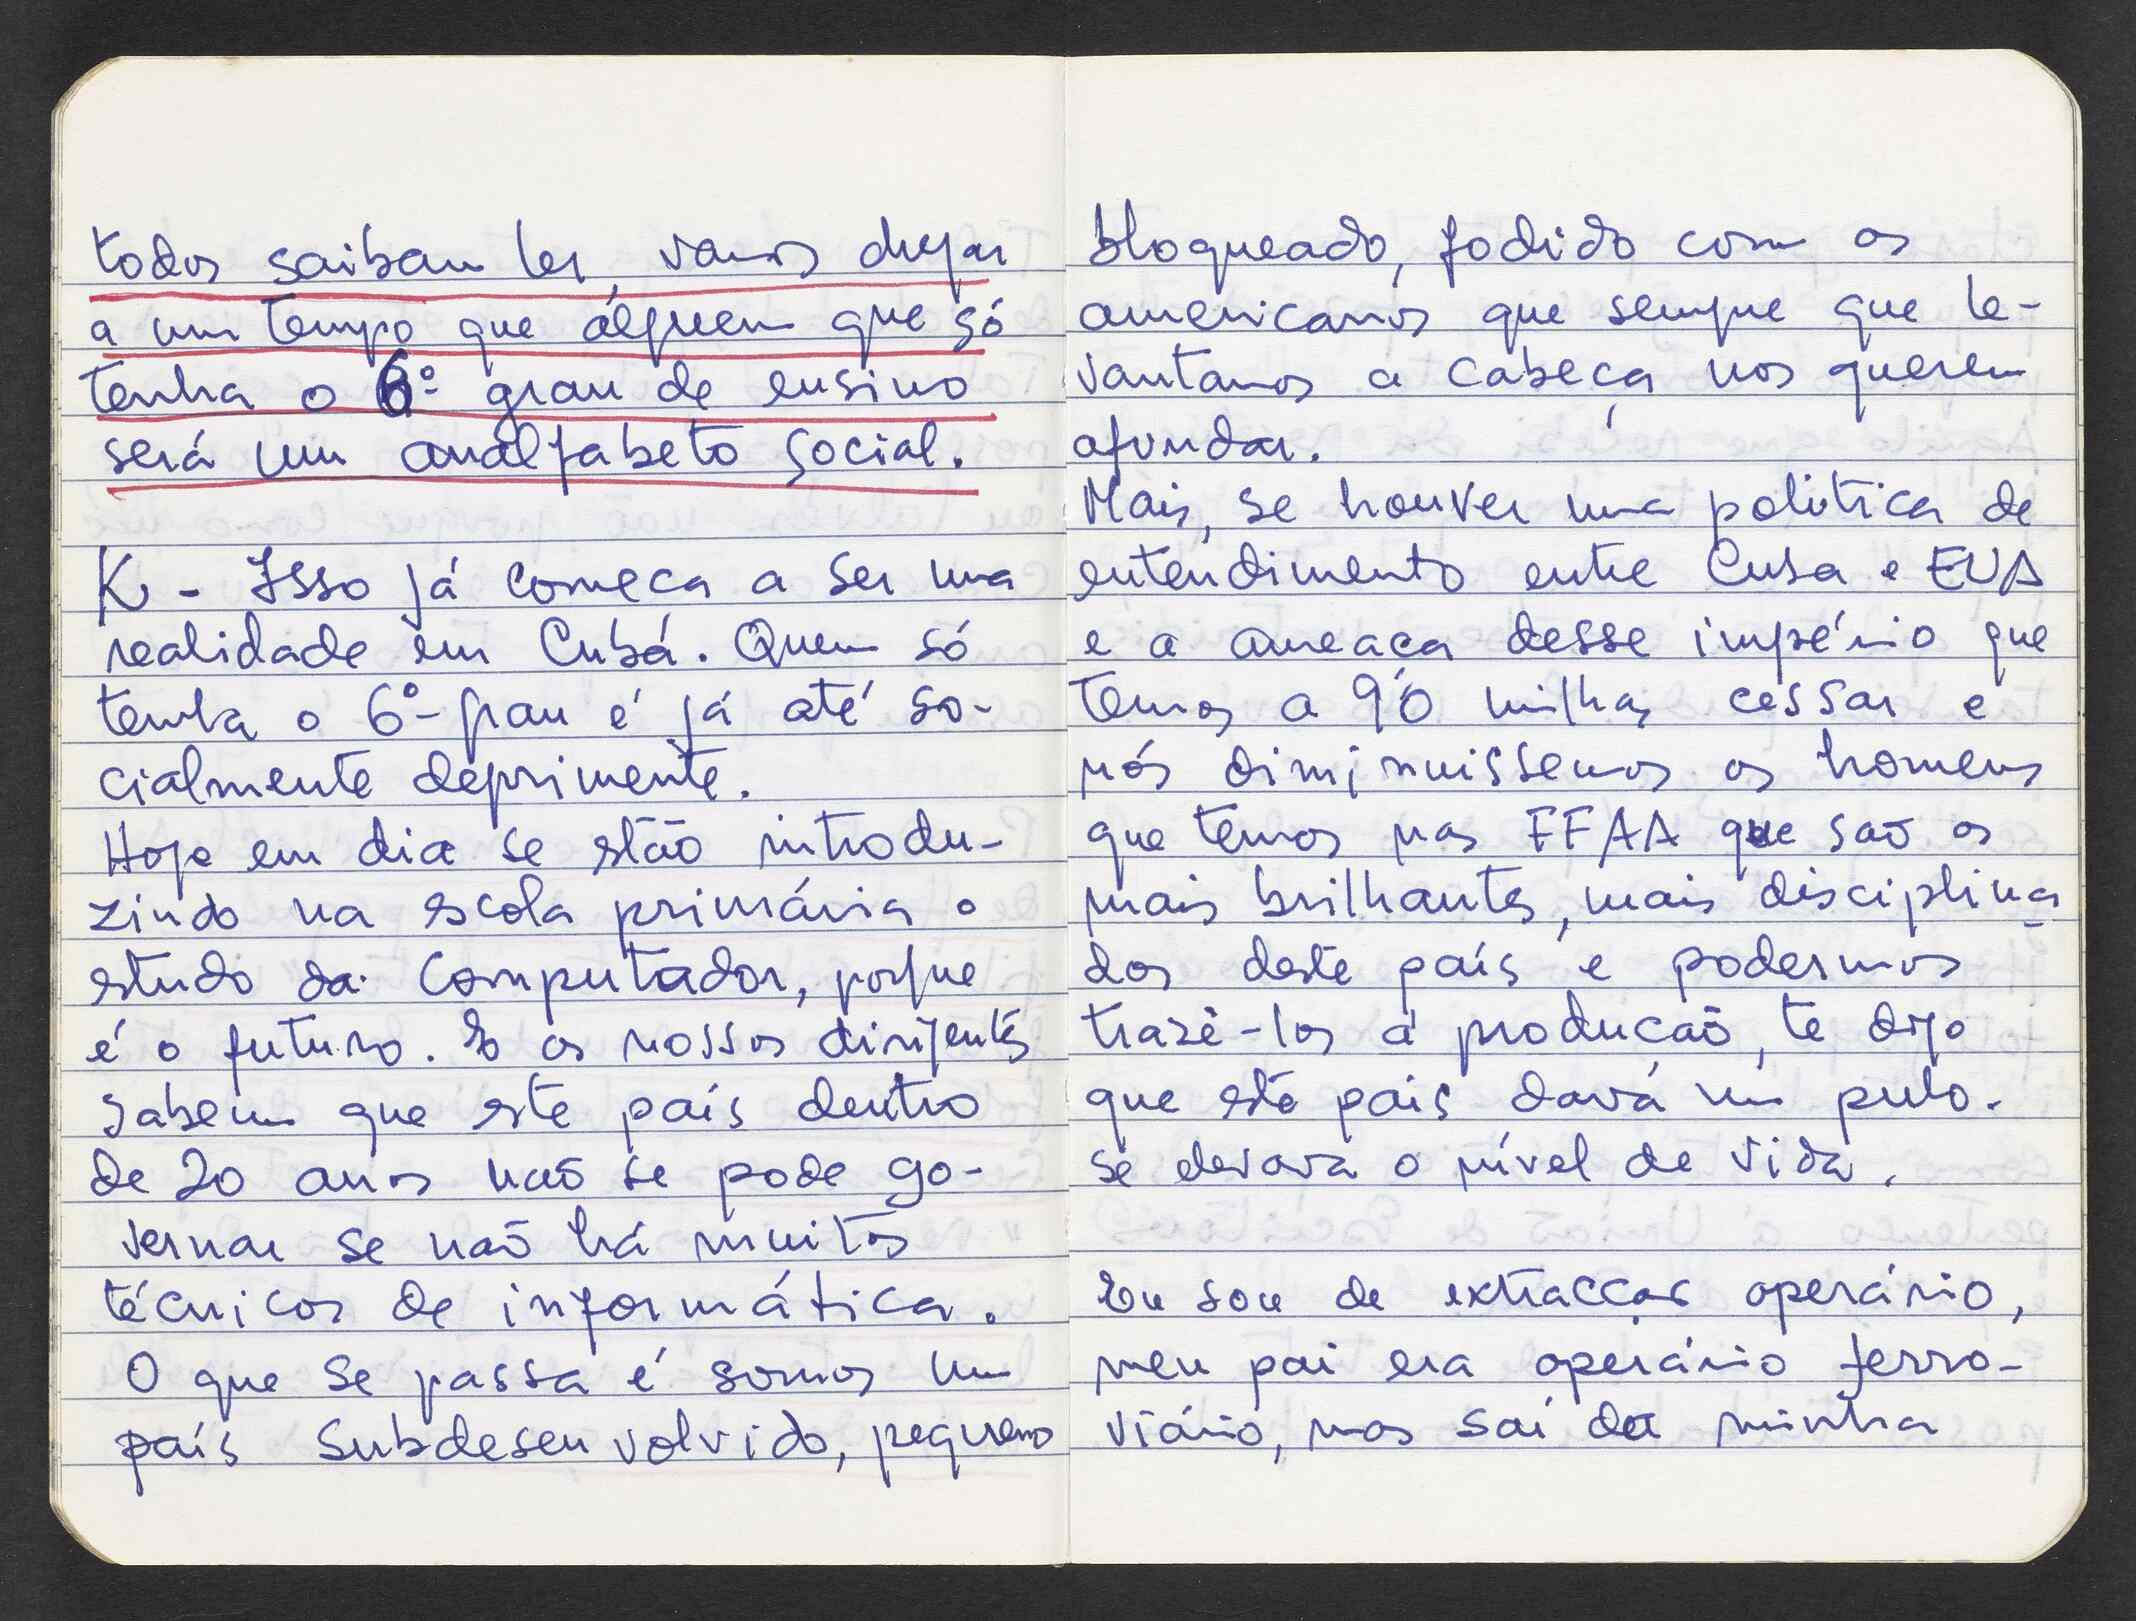 todos saibam ler, vamos chegar
a um tempo que álguem que só
tenha o 6º grau de ensino
será um analfabeto social.
K - Isso já começa a ser uma
realidade em Cubá. Quem só
tenha o 6º grau é já até so-
cialmente deprimente.
Hoje em dia se stão introdu-
zindo na escola primária o
studo da Computador, porque
é o futuro. E os nossos dirigentes
sabem que este país dentro
de 20 anos não se pode go-
vernar se não há muitos
técnicos de informática.
O que se passa é somos um
país subdesenvolvido, pequeno
bloqueado, fodido com os
americanos que sempre que le-
vantamos a cabeça nos querem
afundar.
Mais, se houver uma politica de
entendimento entre Cuba e EUA
e a ameaça desse império que
temos a 90 milhas cessar e
nós diminuissemos os homens
que temos nas FFAA que saõ os
mais brilhantes, mais disciplina
dos deste país e podermos
trazê-los á produçaõ, te digo
que este pais davá um pulo.
se elevava o nível de vida.
Eu sou de extracçao operário,
meu pai era operário ferro-
viário, mas saí da minha